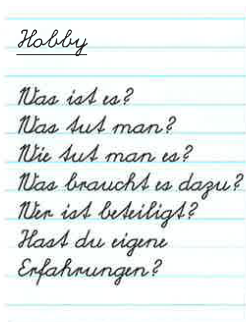 Hobby
Was ist es?
Was tut man?
Wie tut man es?
Was braucht es dazu?
Wer ist beteiligt?
Hast du eigene
Erfahrungen?